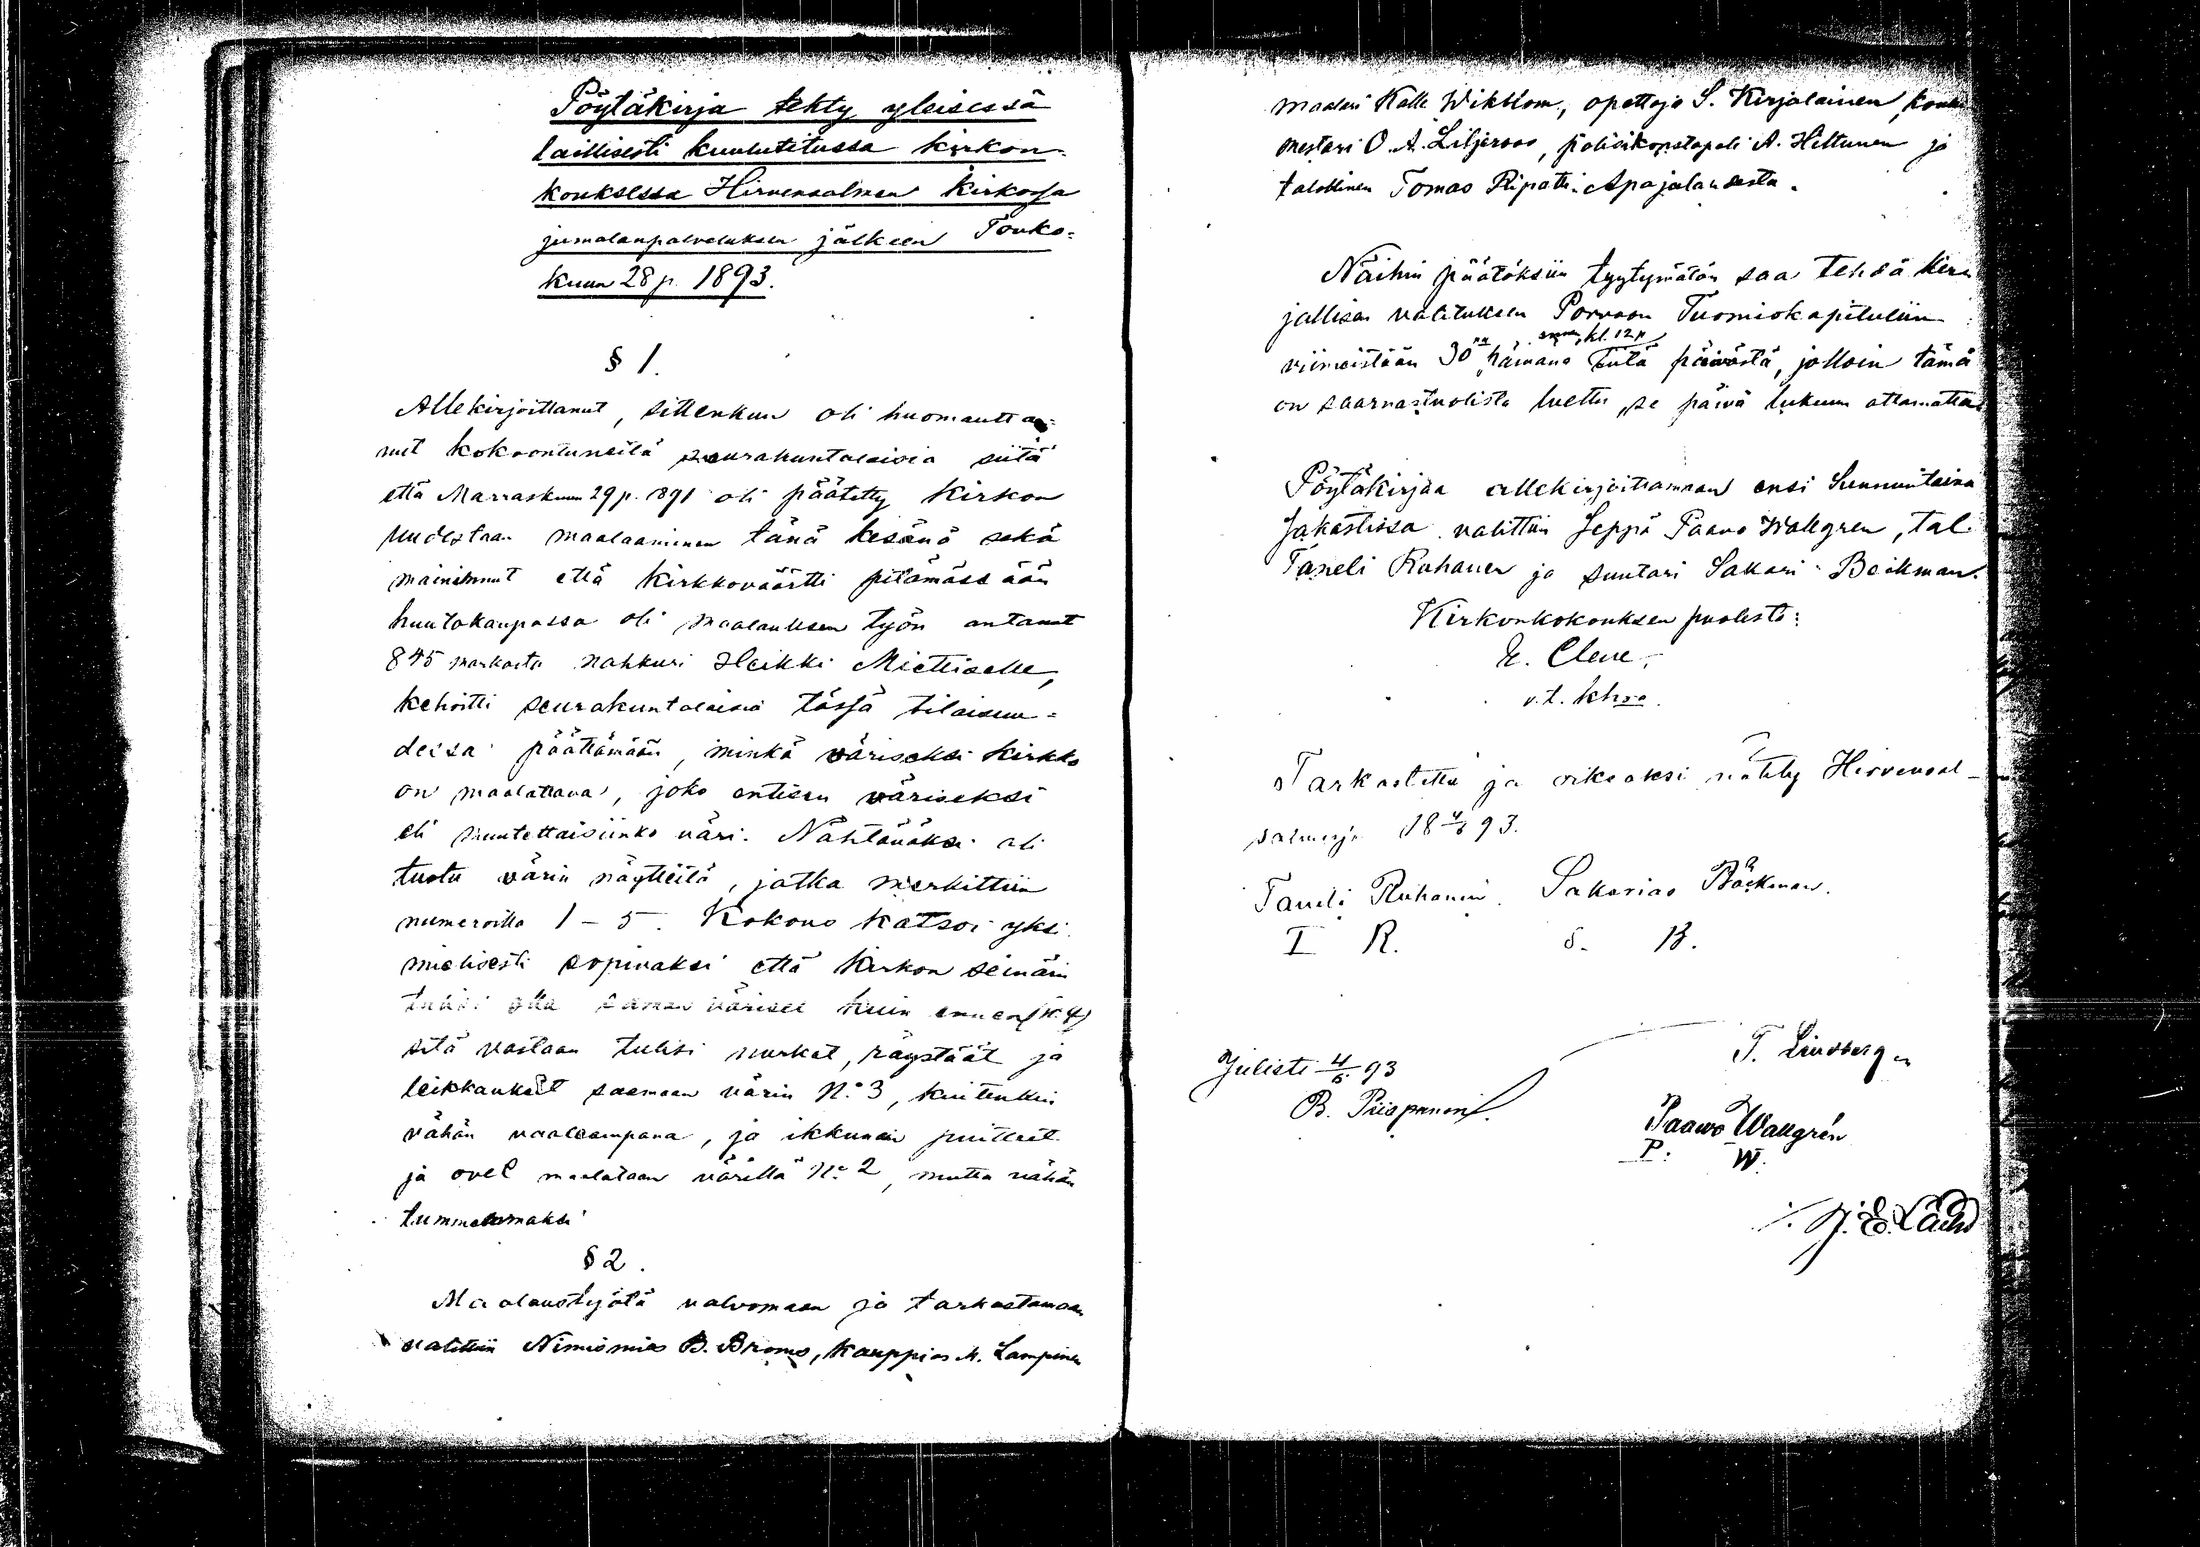 Pöytäkirja tehty yleisessä
laillisesti kuulutetussa kirkon-
kouksessa Hirvensalmen kirkossa
jumalanpalveluksen jälkeen Touko-
kuun 28 p. 1893.
§ 1.
Allekirjoittanut, sittenkun oli huomautta-
nut kokoontuneita seurakuntalaisia siitä
että Marraskuun 29 p. 1891 oli päätetty kirkon
uudestaan maalaaminen tänä kesänä sekä
maininnut että kirkkoväärtti pitämässään
huutokaupassa oli maalauksen työn antanut
845 markasta nahkuri Heikki Miettiselle,
kehoitti seurakuntalaisia tässä tilaisuu-
dessa päättämään, minkä väriseksi kirkko
on maalattava, joko entisen väriseksi
eli muutettaisiinko väri. Nähtäväksi oli
tuotu värin näytteitä, jotka merkittiin
numeroilla 1 - 5. Kokous katsoi yksi
mielisesti sopivaksi että kirkon seinäin
tulisi olla saman väriset kuin ennen (N:4)
sitä vastaan tulisi nurkat, räystäät ja
leikkaukset saamaan värin N:o 3, kuitenkin
vähän vaaleampana, ja ikkunain puitteet
ja ovet maalataan värillä N:o 2, mutta vähän
tummemmaksi
§ 2.
Maalaustyötä valvomaan ja tarkastamaan
valittiin Nimismies B. Broms, kauppias M. Lampinen
maalari Kalle Wikblom, opettaja S. Kirjalainen,
mestari O. A. Liljeroos, poliisikonstapeli A. Hiltunen ja
talollinen Tomas Ripatti Apajalandesta.
Näihin päätöksiin tyytymätön saa tehdä kir-
jallisen valituksen Porvoon Tuomiokapituliin
viimeistään 30 nä päivänä kl. 12 p. siitä päivästä, jolloin tämä
on saarnastuolista luettu, se päivä lukuun ottamatta
Pöytäkirjaa allekirjoittamaan ensi Sunnuntaina
Sakastissa valittiin Seppä Paavo Wallgren, tal.
Taneli Ruhanen ja suutari Sakari Beckman.
Kirkonkokouksen puolesta:
E. Cleve,
v.t. khra.
Tarkastettu ja oikeaksi nähty Hirvensal-
salmessa 18 4/6 93.
Taneli Ruhanen. Sakarias Bäckman.
T R. S. B.
Julisti 4/6 93
B. Piispanen.
T. Lindberg
Paawo Wallgrén
P. W.